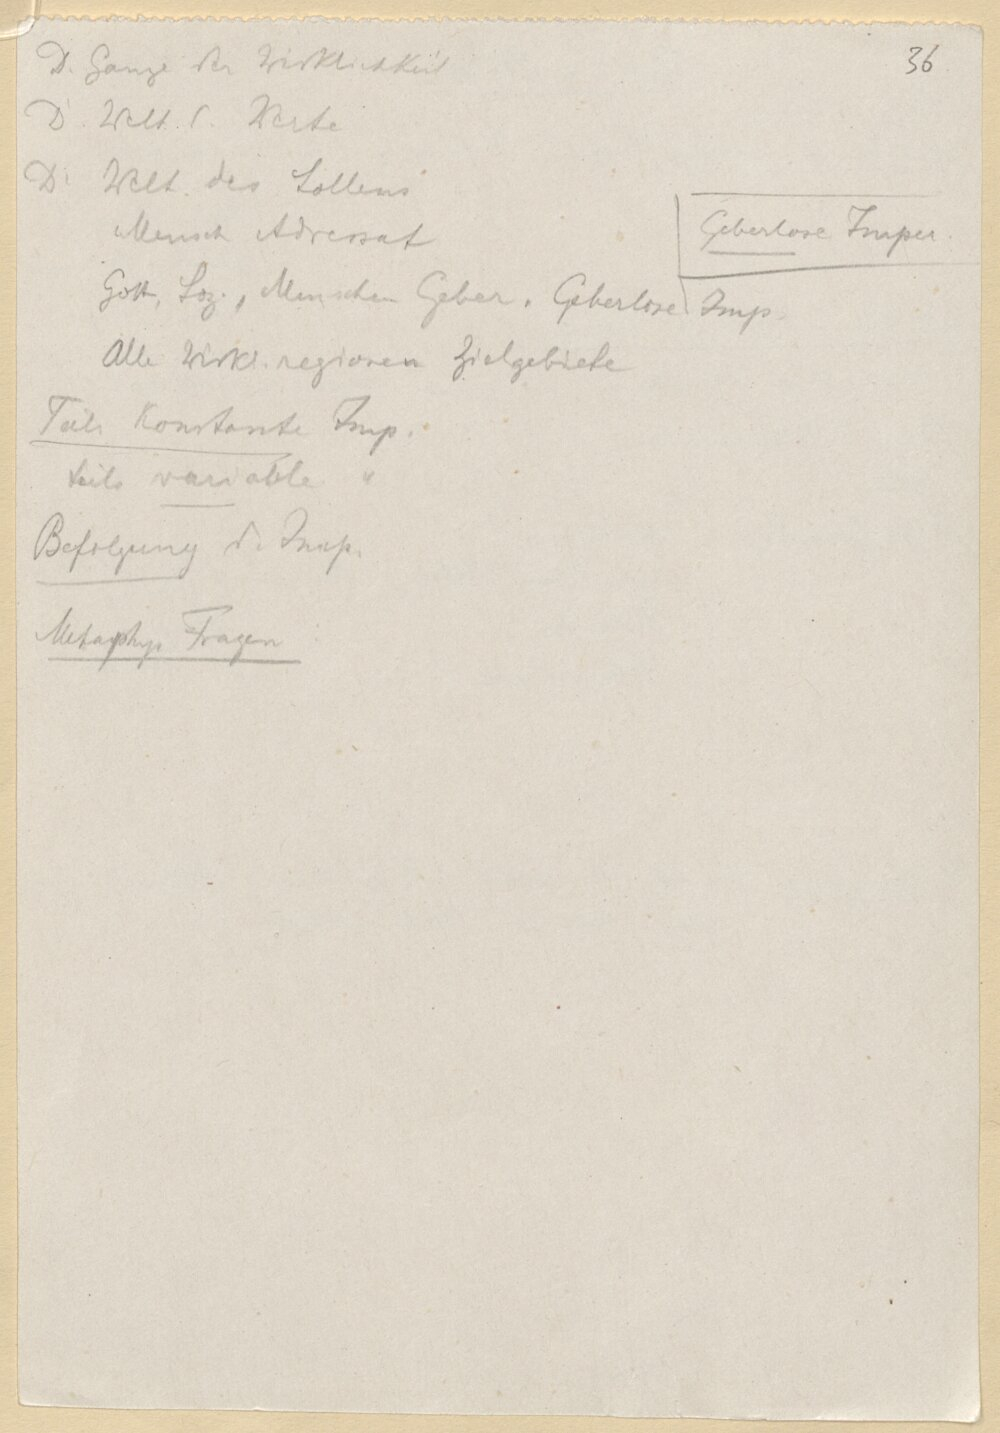 36
D. Ganze der Wirklichkeit
D. Welt d. Werte
D. Welt des Sollens
Mensch Adressat
Geberlose Imper.
Gott, Soz., Menschen Geber. Geberlose Imp.
Alle Wirkl. regionen Zielgebiete
Teils Konstante Imp.
teils variable "
Befolgung d. Imp.
Metaphys Fragen